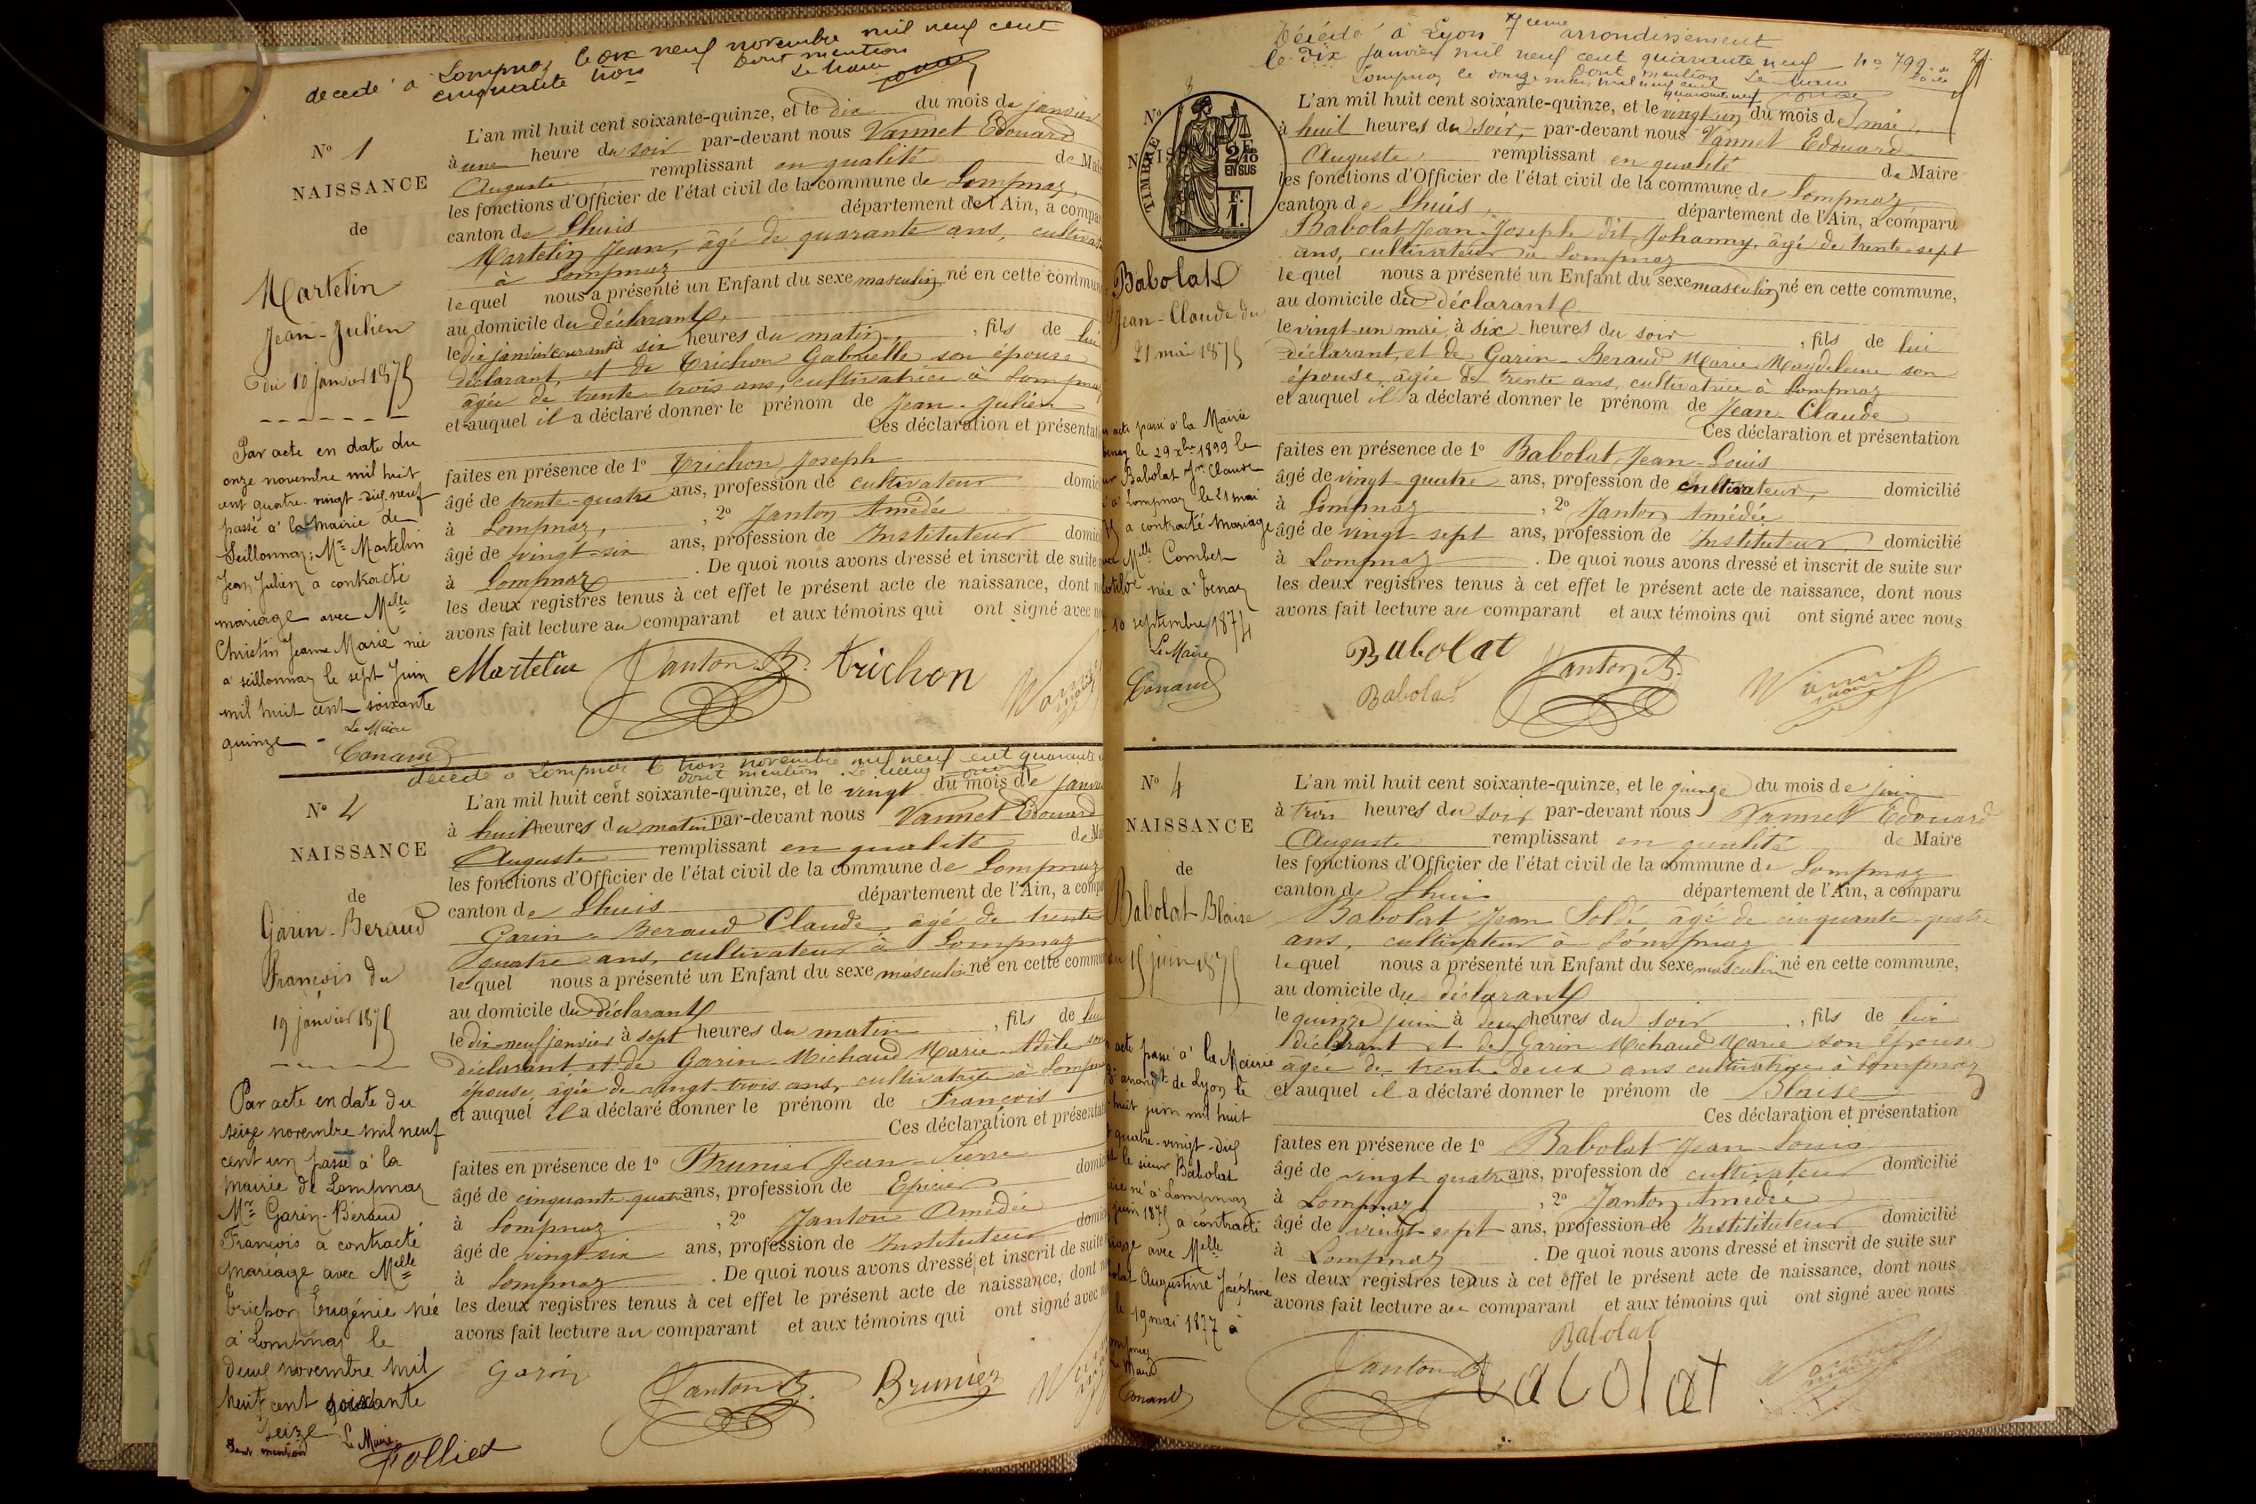 decedé à Lompnaz le onze novembre mil neuf cent
cinquante trois dont mention
Le Maire
N° 1
NAISSANCE
de
Martelin
Jean-Julien
du 10 janvier 1875
Par acte en date du
onze novembre mil huit
cent quatre-vingt-dix-neuf
passé à la mairie de
Seillonnaz, Mr Martelin
Jean Julien a contracté
mariage avec Melle
Christin Jeanne Marie née
à Seillonnaz le sept Juin
mil huit cent soixante
quinze -
Le Maire
Conand
L'an mil huit cent soixante-quinze, et le dix du mois de janvier
à une heure du soir par-devant nous Vannet Edouard
Auguste remplissant en qualité de Mai
les fonctions d'Officier de l'état civil de la commune de Lompnaz,
canton de Lhuis département de l'Ain, a compar
Martelin Jean, âgé de quarante ans, cultivat
à Lompnaz
lequel nous a présenté un Enfant du sexe masculin né en cette commun
au domicile du déclarant,
le dix janvier courant à six heures du matin, fils de lui
déclarant, et de Trichon Gabrielle son épouse
âgée de trente-trois ans, cultivatrice à Lompnaz
et auquel il a déclaré donner le prénom de Jean-Julien
Ces déclaration et présentat
faites en présence de 1° Trichon Joseph
âgé de trente-quatre ans, profession de cultivateur domic
à Lompnaz, , 2° Janton Amédée
âgé de vingt-six ans, profession de Instituteur domic
à Lompnaz . De quoi nous avons dressé et inscrit de suite
les deux registres tenus à cet effet le présent acte de naissance, dont n
avons fait lecture au comparant et aux témoins qui ont signé avec n
Martelin Janton A. trichon
decedé à Lompnaz le trois novembre mil neuf cent quarante
dont mention Le Maire
N° 2
NAISSANCE
de
Garin-Beraud
François du
19 janvier 1875
Par acte en date du
seize novembre mil neuf
cent un passé à la
mairie de Lompnaz
Mr Garin-Béraud
François a contracté
mariage avec Melle
Trichon Eugénie née
à Lompnaz le
deux novembre mil
huit cent soixante
seize
Dont mention Le Maire
Follies
L'an mil huit cent soixante-quinze, et le vingt du mois de janvi
à huit heures du matin par-devant nous Vannet Edouard
Auguste remplissant en qualité de Mai
les fonctions d'Officier de l'état civil de la commune de Lompnaz
canton de Lhuis département de l'Ain, a compa
Garin-Beraud Claude, âgé de trente
quatre ans, cultivateur à Lompnaz
lequel nous a présenté un Enfant du sexe masculin né en cette commu
au domicile du déclarant
le dix-neuf janvier à sept heures du matin , fils de lui
déclarant, et de Garin-Michaud Marie-Adèle son
épouse, âgée de vingt-trois ans, cultivatrice à Lompnaz
et auquel il a déclaré donner le prénom de François
Ces déclaration et présentat
faites en présence de 1° Brunier Jean-Pierre
âgé de cinquante-quatre ans, profession de Epicier domic
à Lompnaz , 2° Janton Amédée
âgé de vingt-six ans, profession de Instituteur domic
à Lompnaz . De quoi nous avons dressé et inscrit de suite
les deux registres tenus à cet effet le présent acte de naissance, dont n
avons fait lecture au comparant et aux témoins qui ont signé avec n
Garin Janton A. Brunier
Décédé à Lyon 7ième arrondissement
le dix janvier mil neuf cent quarante neuf n° 792
Lompnaz le onze mai mil neuf cent quarante neuf
dont mention Le Maire
N°
TIMBRE
2/10
EN SUS
F.
1.
Babolat
Jean-Claude du
21 mai 1875
acte passé à la Mairie
Tenay le 29 xbre 1899 le
Babolat Jn Claude
à Lompnaz le 21 mai
75 a contracté mariage
Melle Combet
née à Tenay
10 septembre 1874
Le Maire
Conand
L'an mil huit cent soixante-quinze, et le vingt-un du mois de mai,
à huit heures du soir, par-devant nous Vannet Edouard
Auguste remplissant en qualité de Maire
les fonctions d'Officier de l'état civil de la commune de Lompnaz
canton de Lhuis, département de l'Ain, a comparu
Babolat Jean-Joseph dit Johanny, âgé de trente-sept
ans, cultivateur à Lompnaz
lequel nous a présenté un Enfant du sexe masculin né en cette commune,
au domicile du déclarant
le vingt-un mai à six heures du soir , fils de lui
déclarant, et de Garin-Beraud Marie Magdeleine son
épouse, âgée de trente ans, cultivatrice à Lompnaz
et auquel il a déclaré donner le prénom de Jean-Claude
Ces déclaration et présentation
faites en présence de 1° Babolat Jean-Louis
âgé de vingt-quatre ans, profession de cultivateur, domicilié
à Lompnaz , 2° Janton Amédée
âgé de vingt-sept ans, profession de Instituteur, domicilié
à Lompnaz . De quoi nous avons dressé et inscrit de suite sur
les deux registres tenus à cet effet le présent acte de naissance, dont nous
avons fait lecture au comparant et aux témoins qui ont signé avec nous
Babolat
Babolat Janton A.
N° 4
NAISSANCE
de
Babolat Blaise
du 15 juin 1875
acte passé à la Mairie
arrondt de Lyon le
huit juin mil huit
quatre-vingt-dix
le sieur Babolat
né à Lompnaz
juin 1875 a contracté
avec Melle
Augustine Joséphine
le 19 mai 1877 à
Conand
L'an mil huit cent soixante-quinze, et le quinze du mois de juin
à trois heures du soir par-devant nous Vannet Edouard
Auguste remplissant en qualité de Maire
les fonctions d'Officier de l'état civil de la commune de Lompnaz
canton de Lhuis département de l'Ain, a comparu
Babolat Jean Soldé âgé de cinquante-quatre
ans, cultivateur à Lompnaz
lequel nous a présenté un Enfant du sexe masculin né en cette commune,
au domicile du déclarant
le quinze juin à deux heures du soir , fils de lui
déclarant et de Garin Michaud Marie son épouse
âgée de trente-deux ans cultivatrice à Lompnaz
et auquel il a déclaré donner le prénom de Blaise
Ces déclaration et présentation
faites en présence de 1° Babolat Jean-Louis
âgé de vingt-quatre ans, profession de cultivateur domicilié
à Lompnaz , 2° Janton Amédée
âgé de vingt-sept ans, profession de Instituteur domicilié
à Lompnaz . De quoi nous avons dressé et inscrit de suite sur
les deux registres tenus à cet effet le présent acte de naissance, dont nous
avons fait lecture au comparant et aux témoins qui ont signé avec nous
Babolat
Janton A. babolat